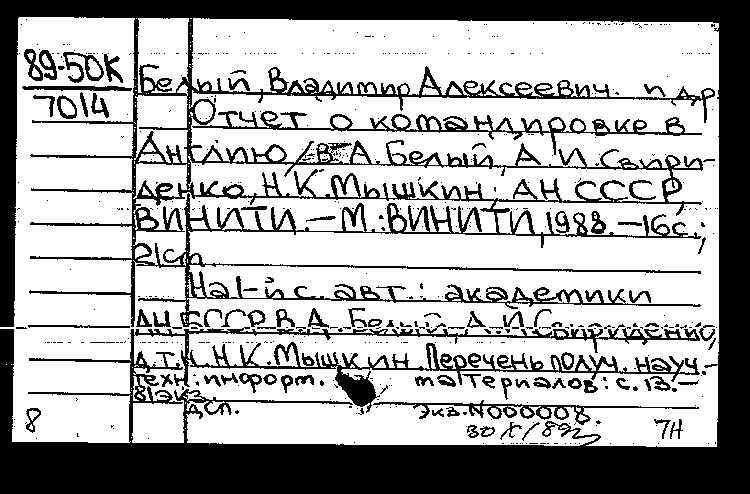 89-50К
7014
Белый, Владимир Алексеевич. и др
Отчет о командировке в
Англию / В. А. Белый, А. И. Свири-
денко, Н. К. Мышкин; АН СССР,
ВИНИТИ. — М.: ВИНИТИ, 1988. — 16с.;
21см
На 1-й с. авт.: академики
АН БССР В. А. Белый, А. И. Свириденко,
д.т.н. Н. К. Мышкин. Перечень получ. науч.-
техн. информ. материалов: с. 13. —
81экз.
дсп. Экз. N000008.
8 30/X/89 7Н